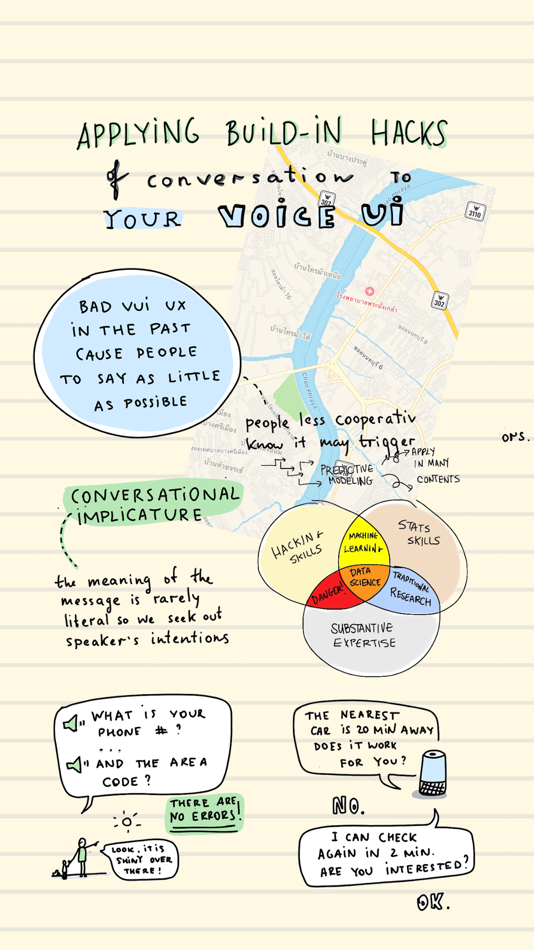 APPLYING BUILD-IN HACKS
of conversation TO
YOUR VOICE UI
บ้านบางประดู่
302
3110
บ้านไทรม้าเหนือ
302
ซอยไทรม้า 16
โรงพยาบาลพระนั่งเกล้า
บ้านไทรม้าใต้
ซอยนนทบุรี 8
ซอยนนทบุรี 6
Chao Phraya
BAD VUI UX
IN THE PAST
CAUSE PEOPLE
TO SAY AS LITTLE
AS POSSIBLE
people less cooperativ
know it may trigger
ors.
PREDICTIVE
MODELING
APPLY
IN MANY
CONTENTS
CONVERSATIONAL
IMPLICATURE
the meaning of the
message is rarely
literal so we seek out
speaker's intentions
HACKING
SKILLS
MACHINE
LEARNING
STATS
SKILLS
DATA
SCIENCE
DANGER!
TRADITIONAL
RESEARCH
SUBSTANTIVE
EXPERTISE
WHAT IS YOUR
PHONE # ?
...
AND THE AREA
CODE ?
THERE ARE
NO ERRORS!
LOOK, IT IS
SHINY OVER
THERE!
THE NEAREST
CAR IS 20 MIN AWAY
DOES IT WORK
FOR YOU?
NO.
I CAN CHECK
AGAIN IN 2 MIN.
ARE YOU INTERESTED?
OK.